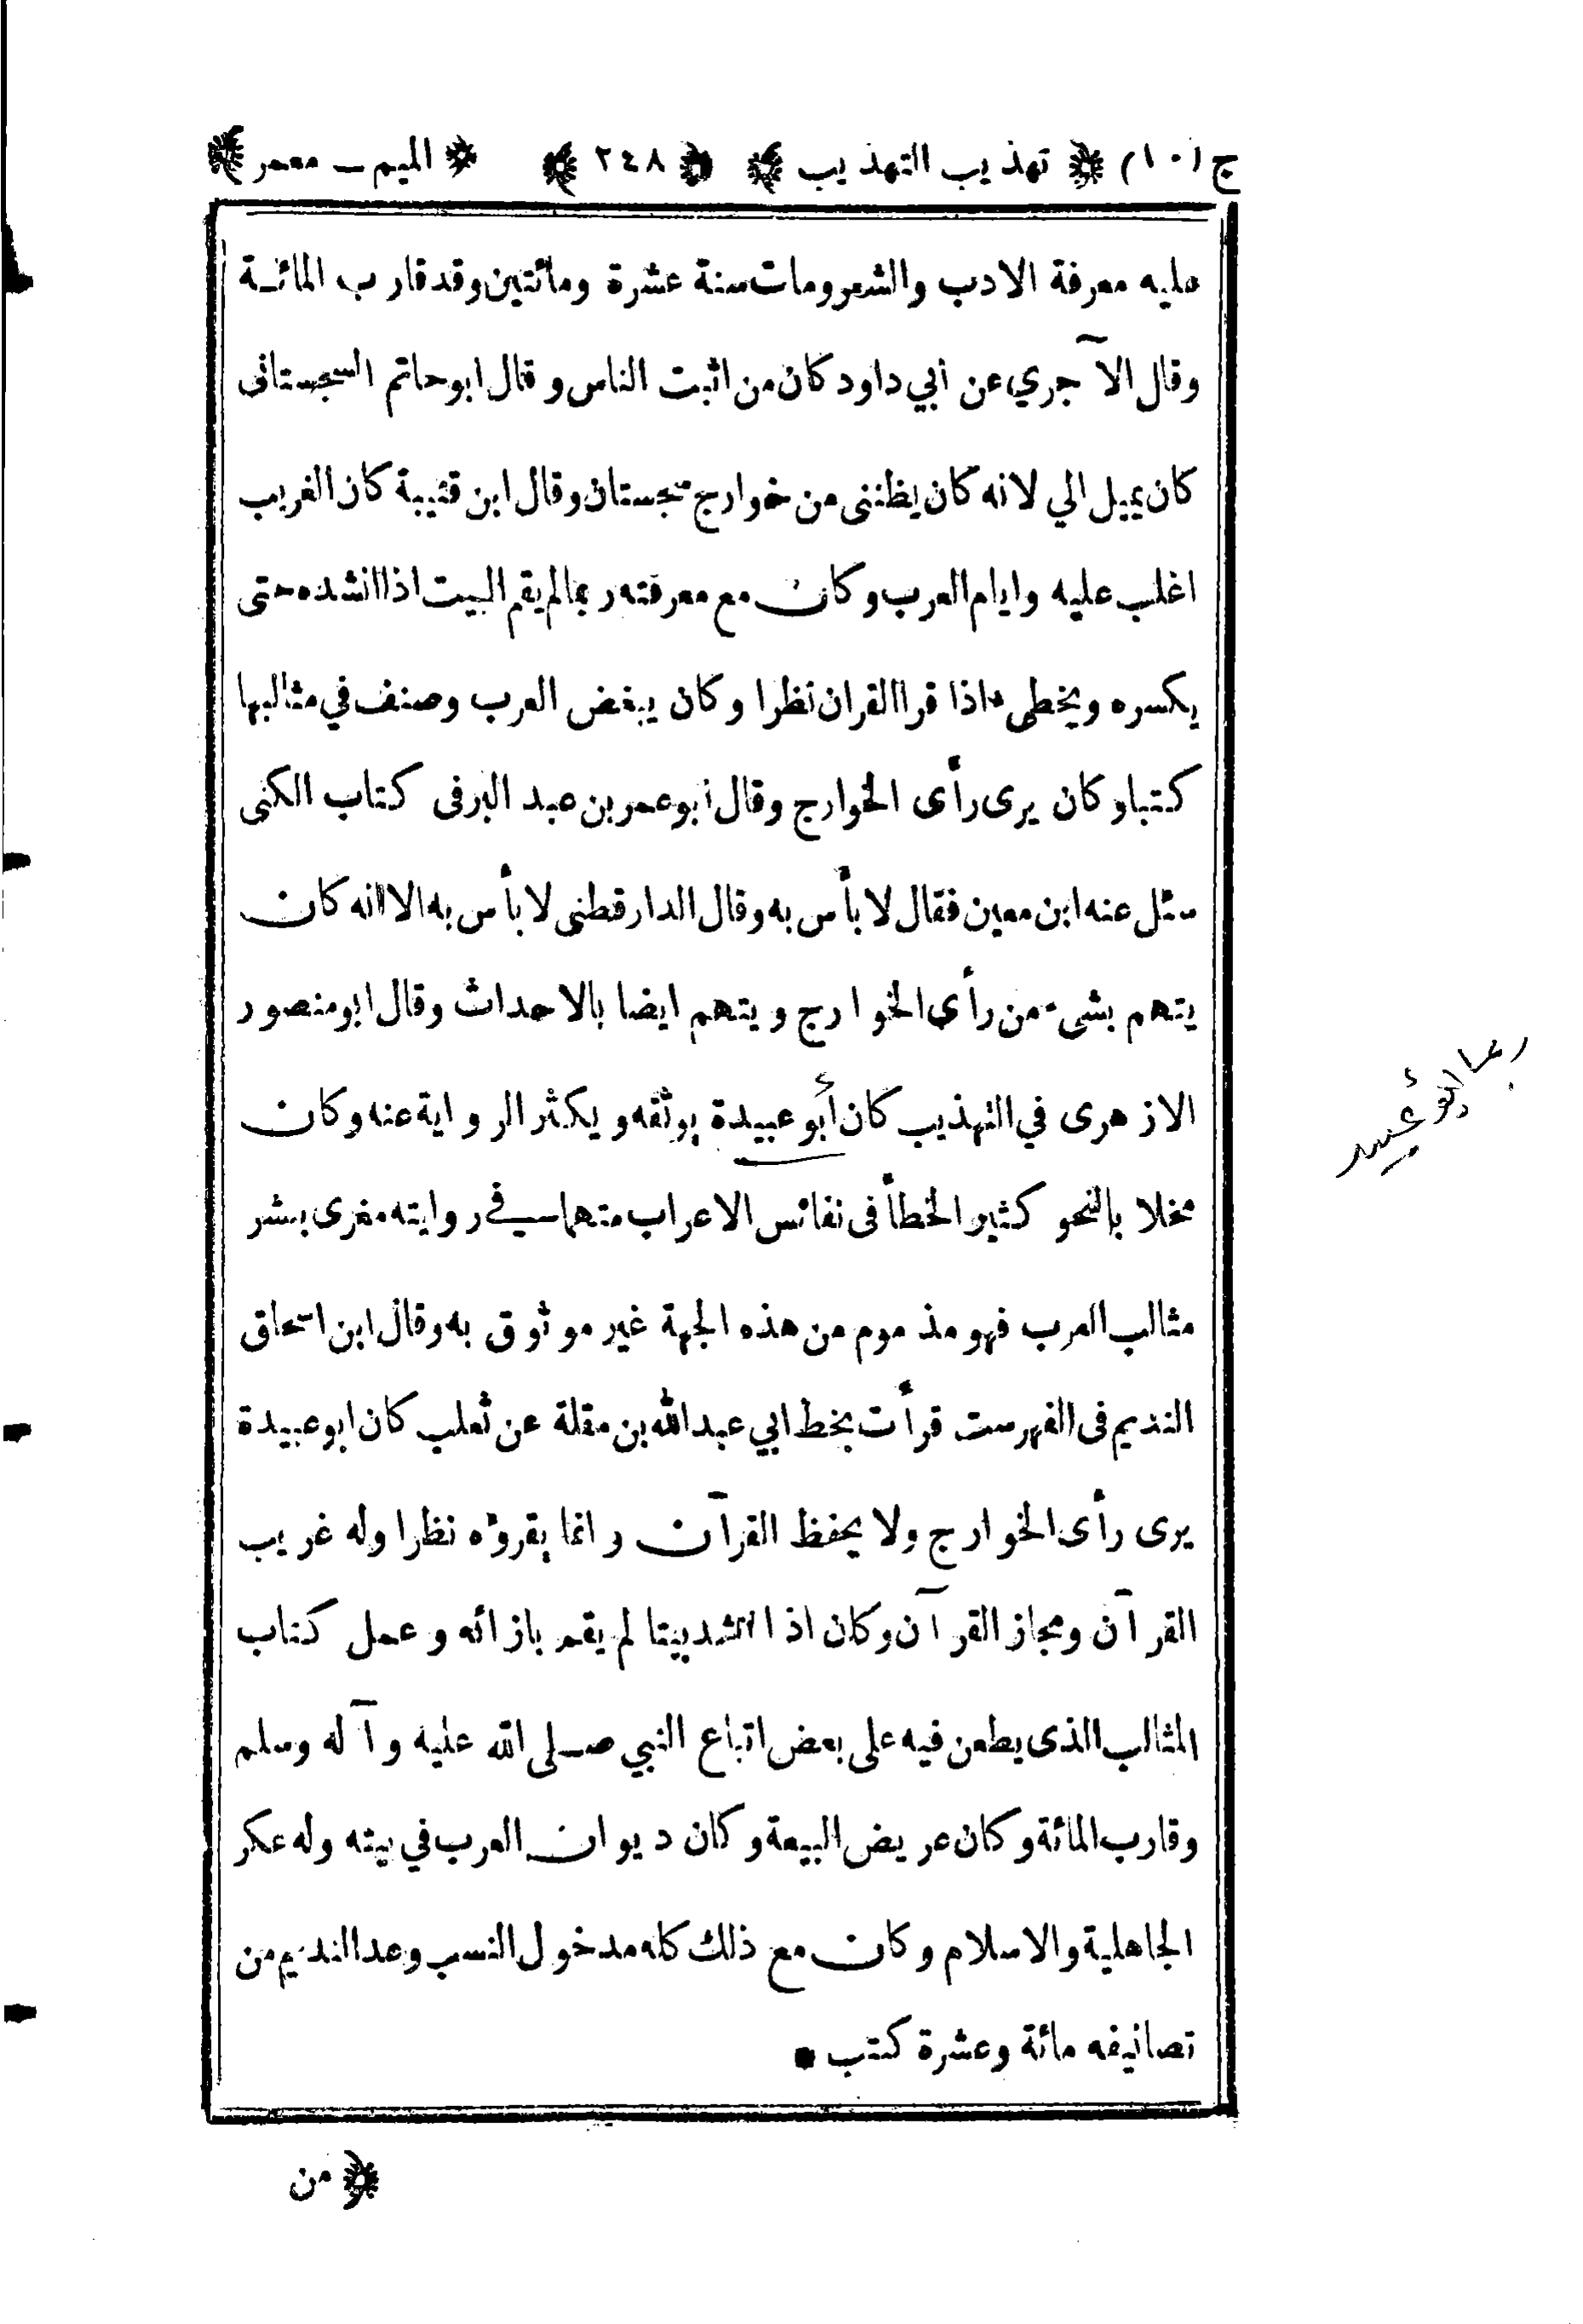 ج (١٠) تهذيب التهذيب ٢٤٨ الميم ــ معمر
عليه معرفة الادب والشعر ومات سنة عشرة ومائتين وقد قارب المائة
وقال الآجري عن أبي داود كان من اثبت الناس وقال ابو حاتم السجستانى
كان يميل الي لانه كان يظننى من خوارج سجستان وقال ابن قتيبة كان الغريب
اغلب عليه وايام العرب وكان مع معرفته ربما لم يقم البيت اذا انشده حتى
يكسره ويخطىء اذا قرا القران نظرا وكان يبغض العرب وصنف في مثالبها
كتبا وكان يرى رأى الخوارج وقال أبو عمر بن عبد البر فى كتاب الكنى
سئل عنه ابن معين فقال لا بأس به وقال الدارقطنى لا بأس به الا انه كان
يتهم بشىء من رأى الخوارج ويتهم ايضا بالاحداث وقال ابو منصور
الازهرى في التهذيب كان أبو عبيدة يوثقه ويكثر الرواية عنه وكان
مخلا بالنحو كثير الخطأ فى نفائس الاعراب متهما في روايته مغرى بنشر
مثالب العرب فهو مذموم من هذه الجهة غير موثوق به وقال ابن اسحاق
النديم فى الفهرست قرأت بخط ابي عبد الله بن مقلة عن ثعلب كان ابو عبيدة
يرى رأى الخوارج ولا يحفظ القرآن وانما يقروءه نظرا وله غريب
القرآن ومجاز القرآن وكان اذا انشد بيتا لم يقم بازائه وعمل كتاب
المثالب الذى يطعن فيه على بعض اتباع النبي صلى الله عليه وآله وسلم
وقارب المائة وكان عريض البيعة وكان ديوان العرب في بيته وله عكر
الجاهلية والاسلام وكان مع ذلك كله مدخول النسب وعد النديم من
تصانيفه مائة وعشرة كتب
من
ربما أبو عبيد